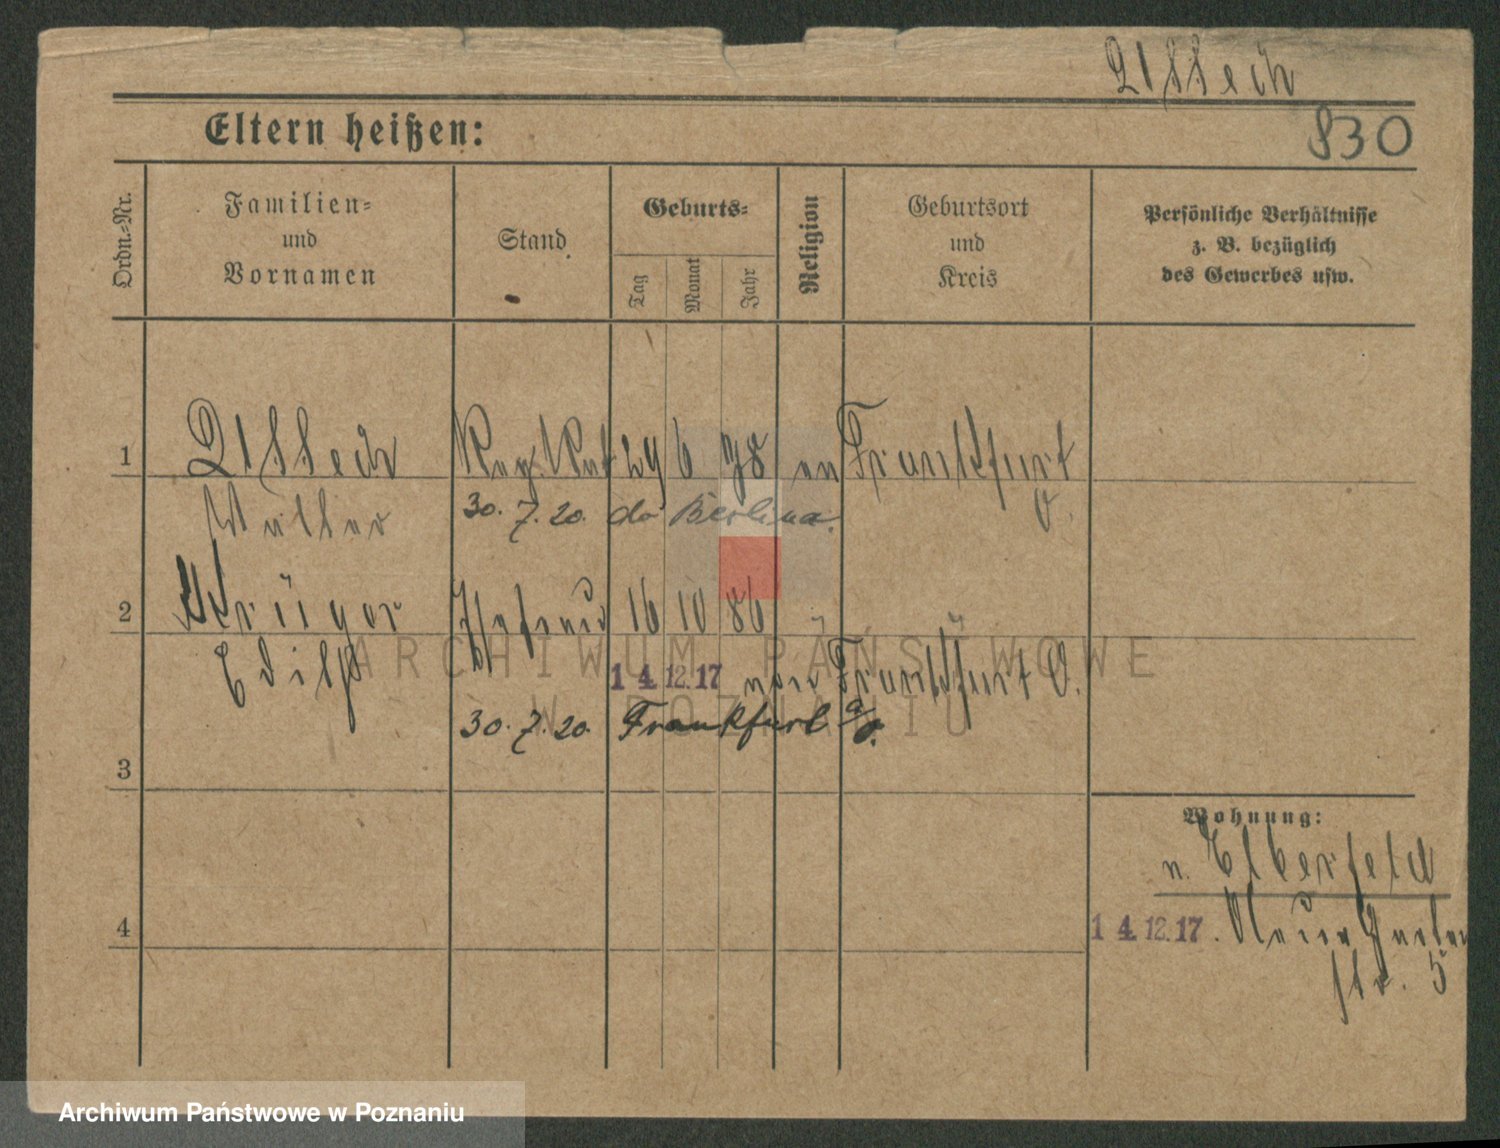 830
Eltern heißen:
Ordn.-Nr.
Familien- und Vornamen
Stand
Geburts-
Tag
Monat
Jahr
Religion
Geburtsort und Kreis
Persönliche Verhältnisse z. B. bezüglich des Gewerbes usw.
1
Reg. Rat 29 6 78 ev Frankfurt
Walter
O.
30. 7. 20.
2
Krüger
Ehefrau 16 10 86
Edith
14.12.17
Frankfurt O.
30. 7. 20. Frankfurt a/O.
3
Wohnung:
n. Elberfeld
4
14.12.17. Neue Garten
str. 5
ARCHIWUM PAŃSTWOWE
W POZNANIU
Archiwum Państwowe w Poznaniu